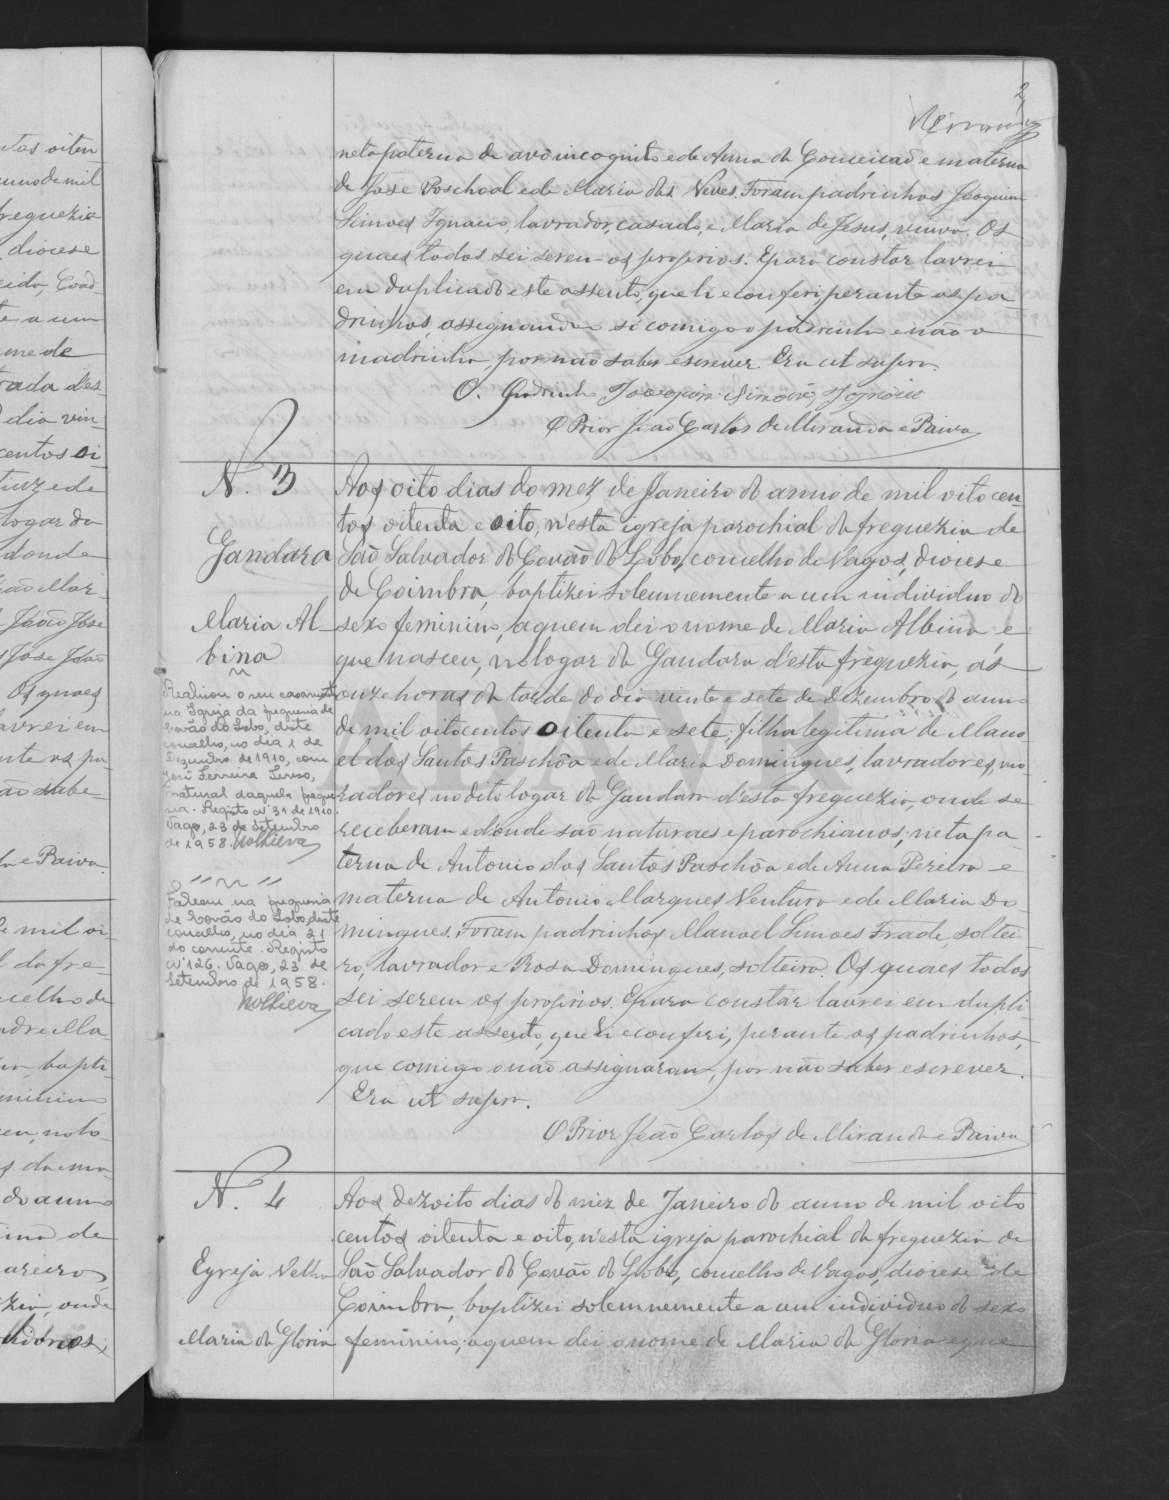 2
Miranda
neta paterna de avô incognito e de Anna da Conceicaõ e materna
de Jose Poschoal e de Maria das Neves. Foram padrinhos Joaquim
Simoes Ignacio, lavrador, casado, e Maria de Jesus, viuva. Os
quaes todos sei serem os proprios. E para constar lavrei
em duplicado este assento, que li e conferi perante os pa
drinhos, assignando só comigo o padrinho e não a
madrinha, por não saber escrever. Era ut supra.
O. Padrinho Joaquim Simões Ignacio
O Prior João Carlos de Miranda e Paiva
N. 3
Gandara
Maria Al-
bina
Realisou o seu casamento
na Igreja da freguesia de
Covão do Lobo, deste
concelho, no dia 1 de
Dezembro de 1910, com
José Ferreira
natural daquela fregue
sia. Registo nº 31 de 1910.
Vagos, 23 de Setembro
de 1958.
Faleceu na freguesia
de Covão do Lobo, deste
concelho, no dia 21
do corrente. Registo
nº 126. Vagos, 23 de
Setembro de 1958.
Aos oito dias do mez de Janeiro do anno de mil oitocen
tos oitenta e oito, n'esta igreja parochial da freguezia de
São Salvador do Covão do Lobo, concelho de Vagos, diocese
de Coimbra, baptizei solemnemente a um individuo do
sexo feminino, a quem dei o nome de Maria Albina e
que nasceu, no logar da Gandara d'esta freguezia, ás
onze horas da tarde do dia vinte e sete de Dezembro do anno
de mil oitocentos oitenta e sete, filha legitima de Mano-
el dos Santos Paschõa e de Maria Domingues, lavradores, mo-
radores no dito logar da Gandara d'esta freguezia, onde se
receberam e d'onde são naturaes e parochianos; neta pa
terna de Antonio dos Santos Paschõa e de Anna Pereira e
materna de Antonio Marques Ventura e de Maria Do
mingues. Foram padrinhos Manoel Simoes Frade, soltei-
ro, lavrador e Rosa Domingues, solteira. Os quaes todos
sei serem os proprios. E para constar lavrei em dupli-
cado este assento, que li e conferi, perante os padrinhos,
que comigo não assignaram, por não saber escrever.
Era ut supra.
O Prior João Carlos de Miranda e Paiva
N. 4
Egreja Velha
Maria da Gloria
Aos dezoito dias do mez de Janeiro do anno de mil oito
centos oitenta e oito, n'esta igreja parochial da freguezia de
São Salvador do Covão do Lobo, concelho de Vagos, diocese de
Coimbra, baptizei solemnemente a um individuo do sexo
feminino, a quem dei o nome de Maria da Gloria e que